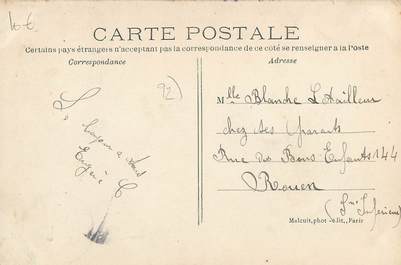 CARTE POSTALE
Certains pays étrangers n'acceptant pas la correspondance de ce côté se renseigner à la Poste
Correspondance
Adresse
92)
Bonjour à tous
Eugène C
Mlle Blanche
chez ses Parents
Rue des Bons Enfants 144
Rouen
(Sne Inférieure)
Malcuit, phot-édit., Paris